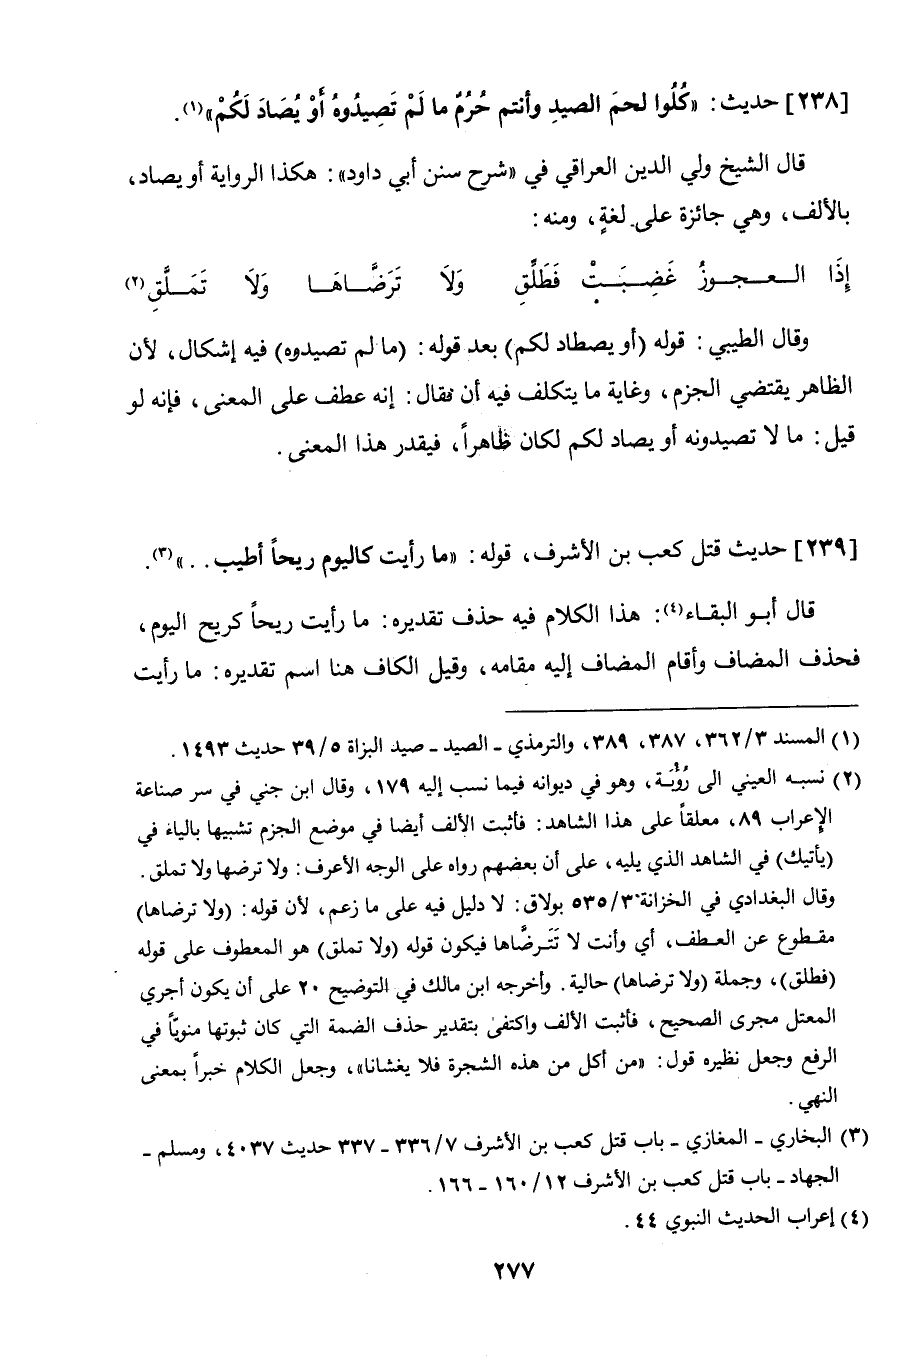 [٢٣٨] حديث: «كُلُوا لحمَ الصيدِ وأنتم حُرُمٌ ما لَمْ تَصِيدُوهُ أَوْ يُصَادَ لَكُمْ»(١).
قال الشيخ ولي الدين العراقي في «شرح سنن أبي داود»: هكذا الرواية أو يصاد،
بالألف، وهي جائزة على لغةٍ، ومنه:
إِذَا العـجـوزُ غَضِبَـتْ فَطَلِّقِ ولَا تَرَضَّـاهَـا ولَا تَمَـلَّقِ(٢)
وقال الطيبي: قوله (أو يصطاد لكم) بعد قوله: (ما لم تصيدوه) فيه إشكال، لأن
الظاهر يقتضي الجزم، وغاية ما يتكلف فيه أن يقال: إنه عطف على المعنى، فإنه لو
قيل: ما لا تصيدونه أو يصاد لكم لكان ظاهراً، فيقدر هذا المعنى.
[٢٣٩] حديث قتل كعب بن الأشرف، قوله: «ما رأيت كاليوم ريحاً أطيب. .»(٣).
قال أبـو البقـاء(٤): هذا الكلام فيه حذف تقديره: ما رأيت ريحاً كريح اليوم،
فحذف المضاف وأقام المضاف إليه مقامه، وقيل الكاف هنا اسم تقديره: ما رأيت
(١) المسند ٣٦٢/٣، ٣٨٧، ٣٨٩، والترمذي ـ الصيد ـ صيد البزاة ٣٩/٥ حديث ١٤٩٣.
(٢) نسبـه العيني الى رُؤْبَـة، وهو في ديوانه فيما نسب إليه ١٧٩، وقال ابن جني في سر صناعة
الإعراب ٨٩، معلقاً على هذا الشاهد: فأثبت الألف أيضا في موضع الجزم تشبيها بالياء في
(يأتيك) في الشاهد الذي يليه، على أن بعضهم رواه على الوجه الأعرف: ولا ترضها ولا تملق.
وقال البغدادي في الخزانة ٥٣٥/٣ بولاق: لا دليل فيه على ما زعم، لأن قوله: (ولا ترضاها)
مقـطوع عن العـطف، أي وأنت لا تَتَـرضَّاها فيكون قوله (ولا تملق) هو المعطوف على قوله
(فطلق)، وجملة (ولا ترضاها) حالية. وأخرجه ابن مالك في التوضيح ٢٠ على أن يكون أجري
المعتل مجرى الصحيح، فأثبت الألف واكتفىٰ بتقدير حذف الضمة التي كان ثبوتها منويّاً في
الرفع وجعل نظيره قول: «من أكل من هذه الشجرة فلا يغشانا»، وجعل الكلام خبراً بمعنى
النهي.
(٣) البخاري ـ المغازي ـ باب قتل كعب بن الأشرف ٣٣٦/٧ ـ ٣٣٧ حديث ٤٠٣٧، ومسلم ـ
الجهاد ـ باب قتل كعب بن الأشرف ١٦٠/١٢ ـ ١٦٦.
(٤) إعراب الحديث النبوي ٤٤.
٢٧٧